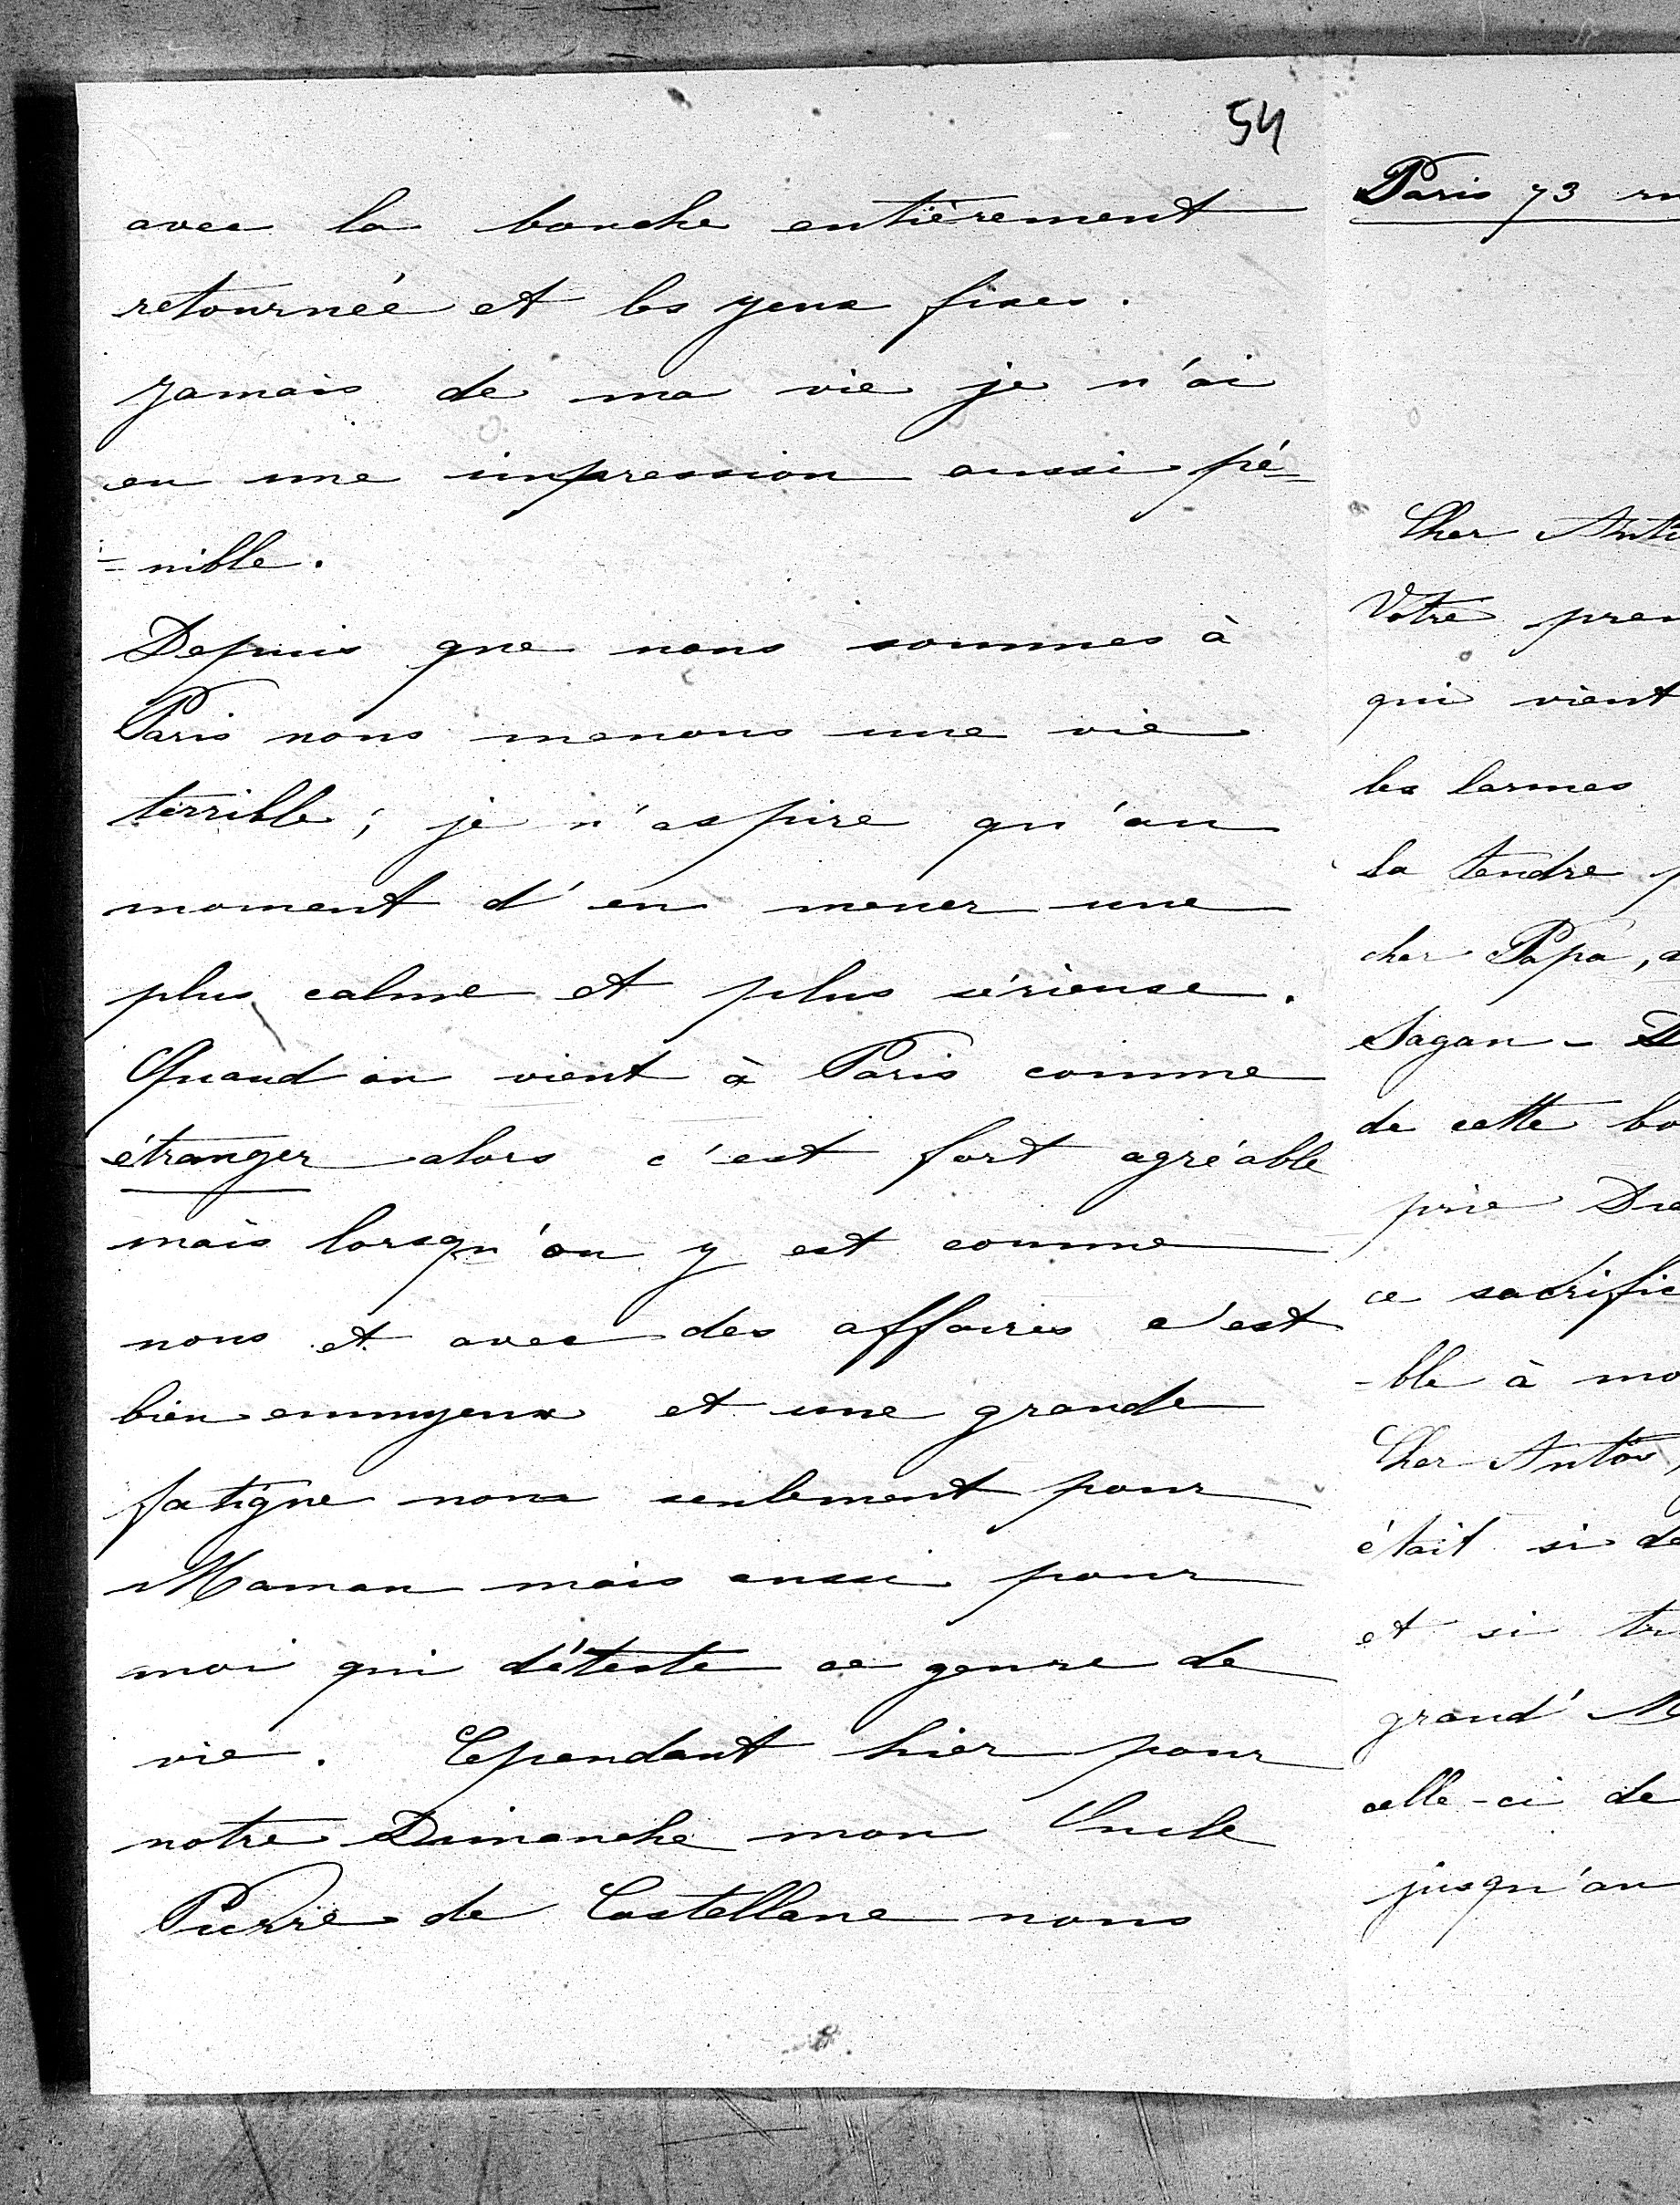 54
avec la bouche entièrement
retournée et les yeux fixes.
Jamais de ma vie je n'ai
eu une impression aussi pé=
=nible.
Depuis que nous sommes à
Paris nous menons une vie
terrible; je n'aspire qu'au
moment d'en mener une
plus calme et plus sérieuse.
Quand on vient à Paris comme
étranger alors c'est fort agréable
mais lorsqu'on y est comme
nous et avec des affaires c'est
bien ennuyeux et une grande
fatigue non seulement pour
Maman mais aussi pour
moi qui déteste ce genre de
vie. Cependant hier pour
notre Dimanche mon Oncle
Pierre de Castellane nous
Paris 73 ru
Cher Anto
Votre prem
qui vient
les larmes
la tendre p
cher Papa, a
Sagan - D
de cette bo
prie Die
ce sacrific
-ble à mo
Cher Antoi
était si de
et si tr
grand' M
celle-ci de
jusqu'au